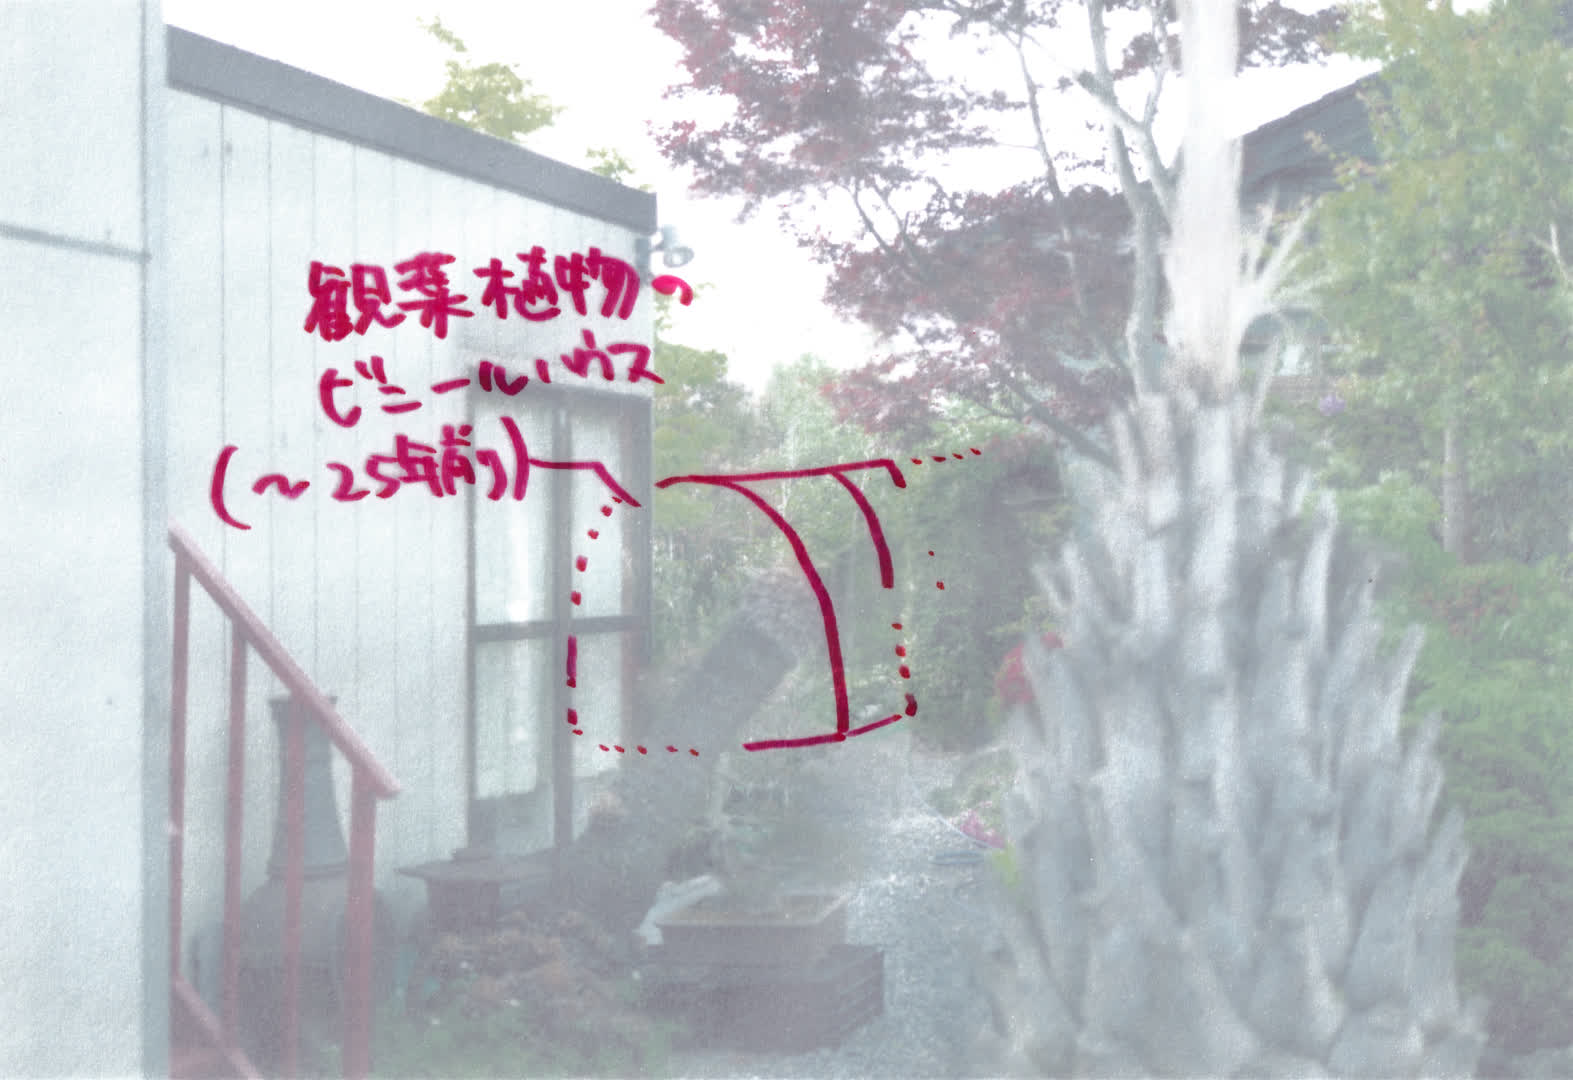 観葉植物の
ビニールハウス
(〜25年前)